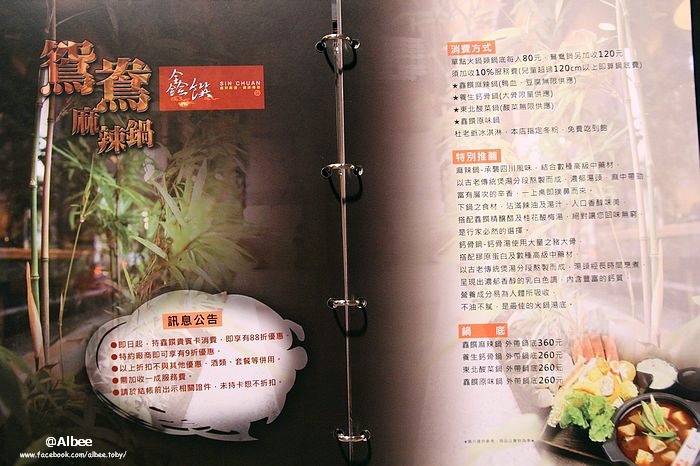 鴛鴦
麻辣鍋
鑫饌
SIN CHUAN
訊息公告
●即日起，持鑫饌貴賓卡消費，即享有88折優惠。
●特約廠商即可享有9折優惠。
●以上折扣不與其他優惠、酒類、套餐等併用。
●需加收一成服務費。
●請於結帳前出示相關證件，未持卡恕不折扣。
@Albee
www.facebook.com/albee.toby/
消費方式
單點火鍋類鍋底每人80元、鴛鴦鍋另加收120元
須加收10%服務費(兒童超過120cm以上即算鍋底費)
★鑫饌麻辣鍋(鴨血、豆腐無限供應)
★養生鈣骨鍋(大骨限量供應)
★東北酸菜鍋(酸菜無限供應)
★鑫饌原味鍋
杜老爺冰淇淋、本店指定冬粉、免費吃到飽
特別推薦
麻辣鍋-承襲四川風味，結合數種高級中藥材，
以古老傳統煲湯分段熬製而成，濃郁湯頭，麻中帶勁
富有層次的辛香，一上桌即撲鼻而來，
下鍋之食材，沾滿辣油及湯汁，入口香醇味美，
搭配鑫饌精釀醋及桂花酸梅湯，絕對讓您回味無窮，
是行家必然的選擇。
鈣骨鍋-鈣骨湯使用大量之豬大骨，
搭配膠原蛋白及數種高級中藥材，
以古老傳統煲湯分段熬製而成，湯頭經長時間烹煮，
呈現出濃郁香醇的乳白色調，內含豐富的鈣質，
營養成分易為人體所吸收，
不油不膩，是最佳的火鍋湯底。
鍋底
鑫饌麻辣鍋 外帶鍋底260元
養生鈣骨鍋 外帶鍋底260元
東北酸菜鍋 外帶鍋底260元
鑫饌原味鍋 外帶鍋底260元